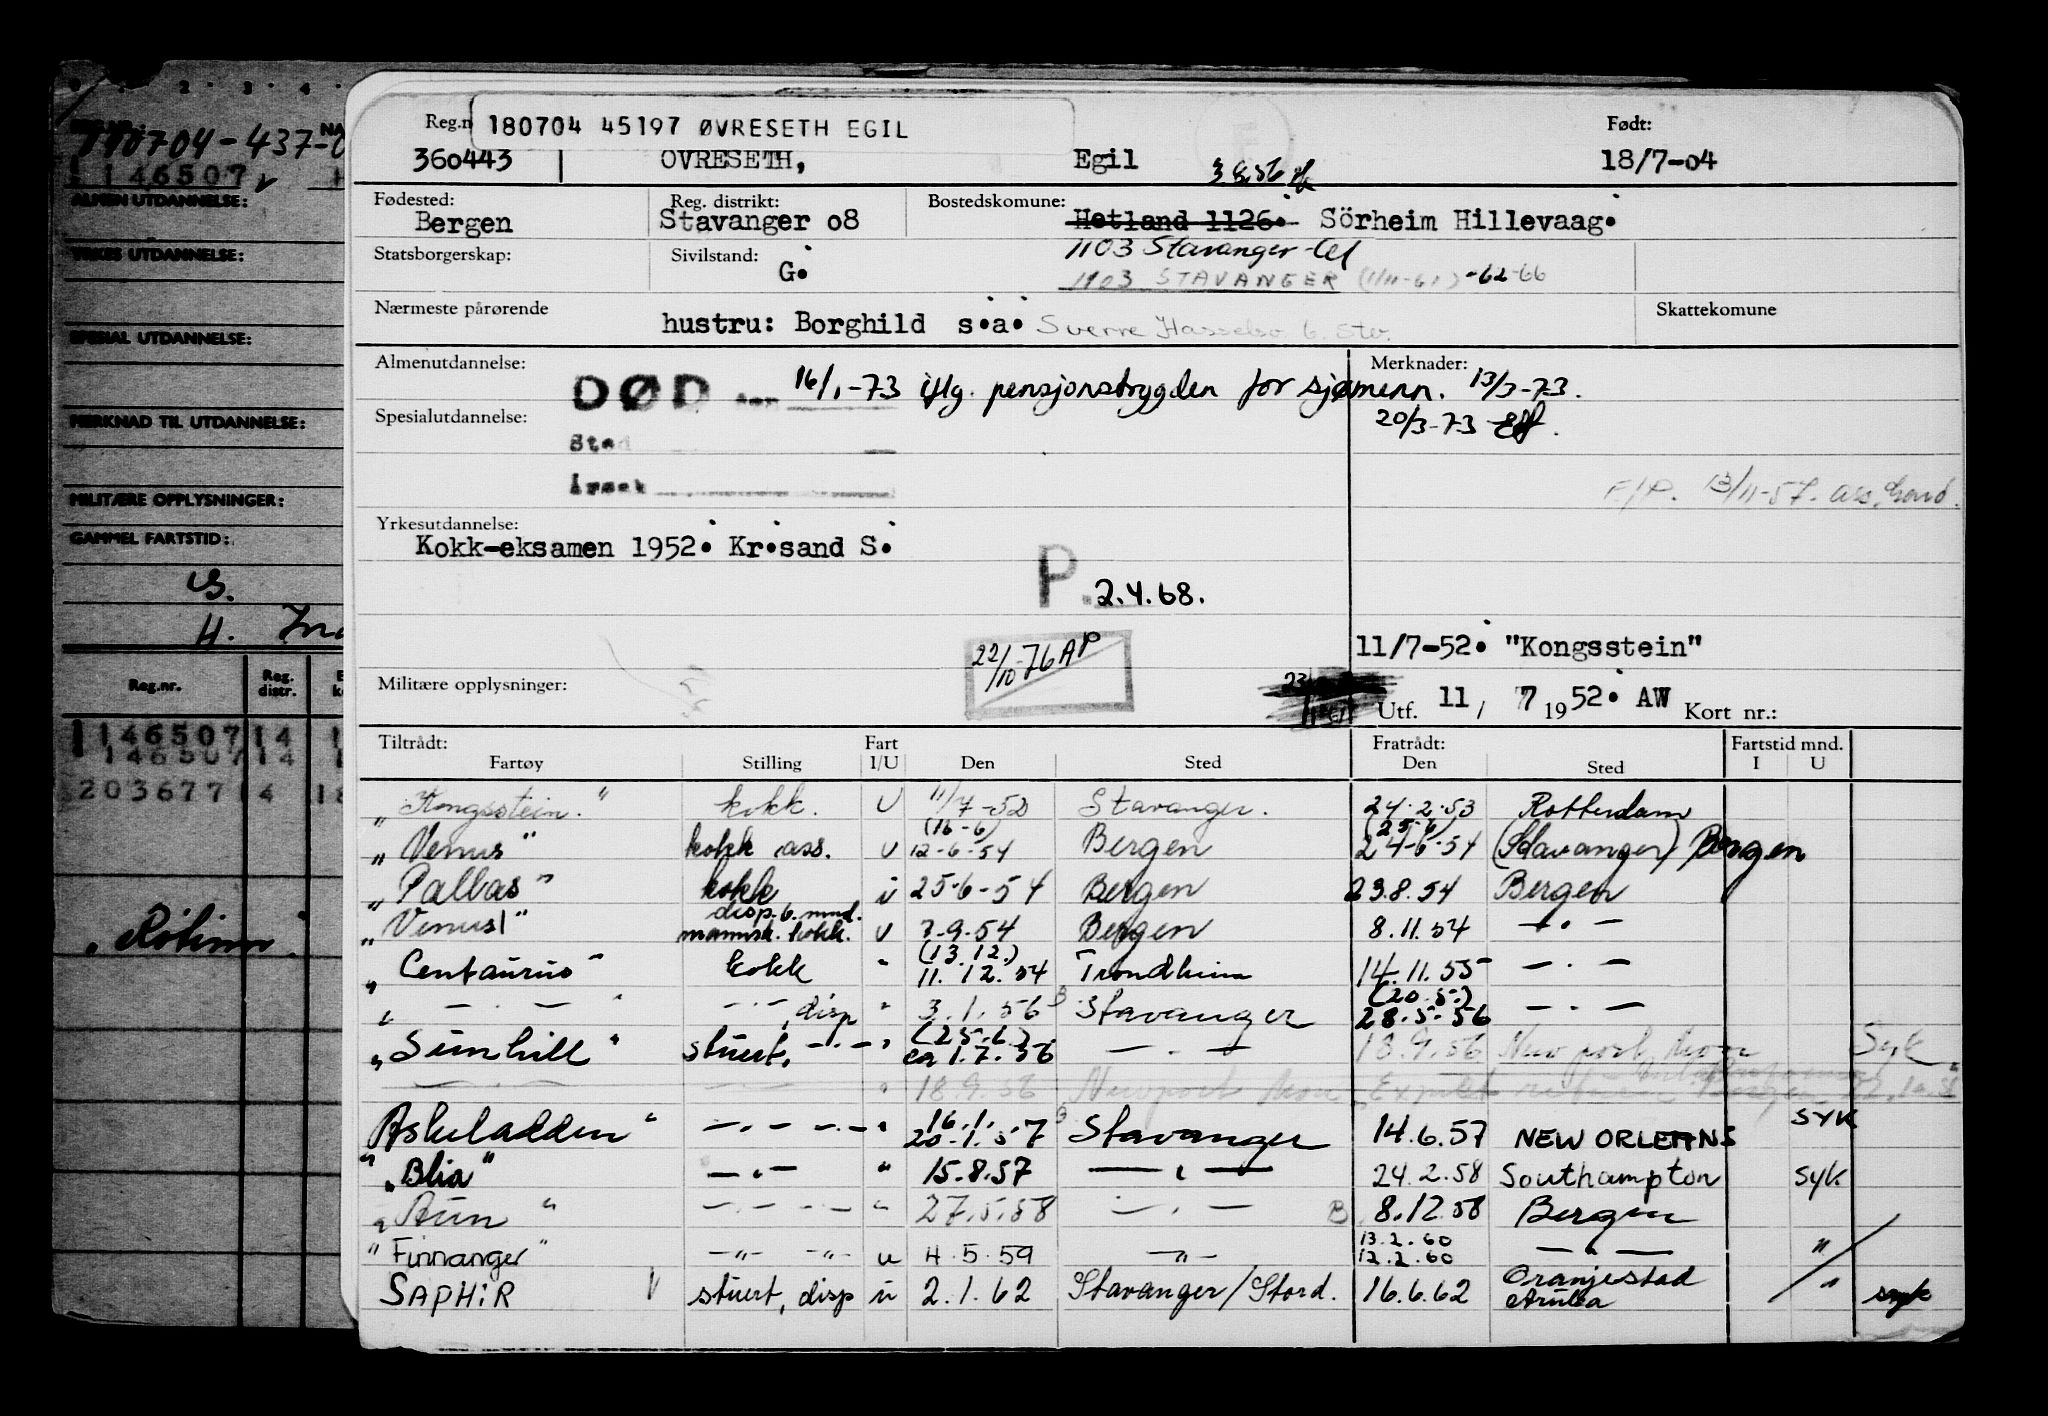 2 3 4
180704-437-0
146507 v
ALMEN UTDANNELSE:
YRKES UTDANNELSE:
SPESIAL UTDANNELSE:
MERKNAD TIL UTDANNELSE:
MILITÆRE OPPLYSNINGER:
GAMMEL FARTSTID:
S.
H.
Reg.nr. Reg. distr.
146507 14 1
146507 14 1
203677 14 18
Reg.n 180704 45197 ØVRESETH EGIL Født:
360443 OVRESETH, Egil 18/7-04
3.8.56
Fødested: Bergen Reg. distrikt: Stavanger o8 Bostedskomune: Hetland 1126. Sörheim Hillevaag.
1103 Stavanger
Statsborgerskap: Sivilstand: G.
1103 STAVANGER (1/11-61) -62-66
Nærmeste pårørende hustru: Borghild s.a. Sverre Skattekomune
Almenutdannelse: Merknader:
DØD den 16/1-73 iflg. pensjonstrygden for sjømenn. 13/3-73.
20/3-73
Spesialutdannelse:
Sted
Årsak
F/P. 13/11-57. ass.
Yrkesutdannelse:
Kokk-eksamen 1952. Kr.sand S.
P. 2.4.68.
11/7-52. "Kongsstein"
22/10-76 AP
Militære opplysninger: Utf. 11/ 7 1952. AW Kort nr.:
Tiltrådt: Fart Fratrådt: Fartstid mnd.
Fartøy Stilling I/U Den Sted Den Sted I U
"Kongsstein." kokk. U 11/7-52 Stavanger. 24.2.53 Rotterdam
(16-6) (25-6)
"Venus" kokk ass. U 12-6-54 Bergen 24-6-54 (Stavanger) Bergen
"Pallas" kokk i 25-6-54 Bergen 23.8.54 Bergen
disp. b. mnd.
"Venus" mannsk. kokk. U 7-9-54 Bergen 8.11.54 — . —
(13.12.)
"Centaurus" kokk " 11.12.54 Trondheim 14.11.55 — . —
(20.5.)
" — . — " — . —, disp " 3.1.56 Stavanger 28.5.56 — . —
(25.6.)
"Sunhill" stuert, — . — " ca 1.7.56 — . — 18.9.56 Newport, Mon Syk
" 18.9.56 Newport Mon
16.1. SYK
"Askeladden" — . — . — " 20-1.57 Stavanger 14.6.57 NEW ORLEANS
"Blia" — . — " 15.8.57 — . — 24.2.58 Southampton SYK
"Aun" — . — . — " 27.5.58 — . — B 8.12.58 Bergen
13.2.60
"Finnanger" — " — — " — u 4.5.59 — " — 12.2.60 — " — "
SAPHiR stuert, disp u 2.1.62 Stavanger/Stord. 16.6.62 Oranjestad Aruba " syk